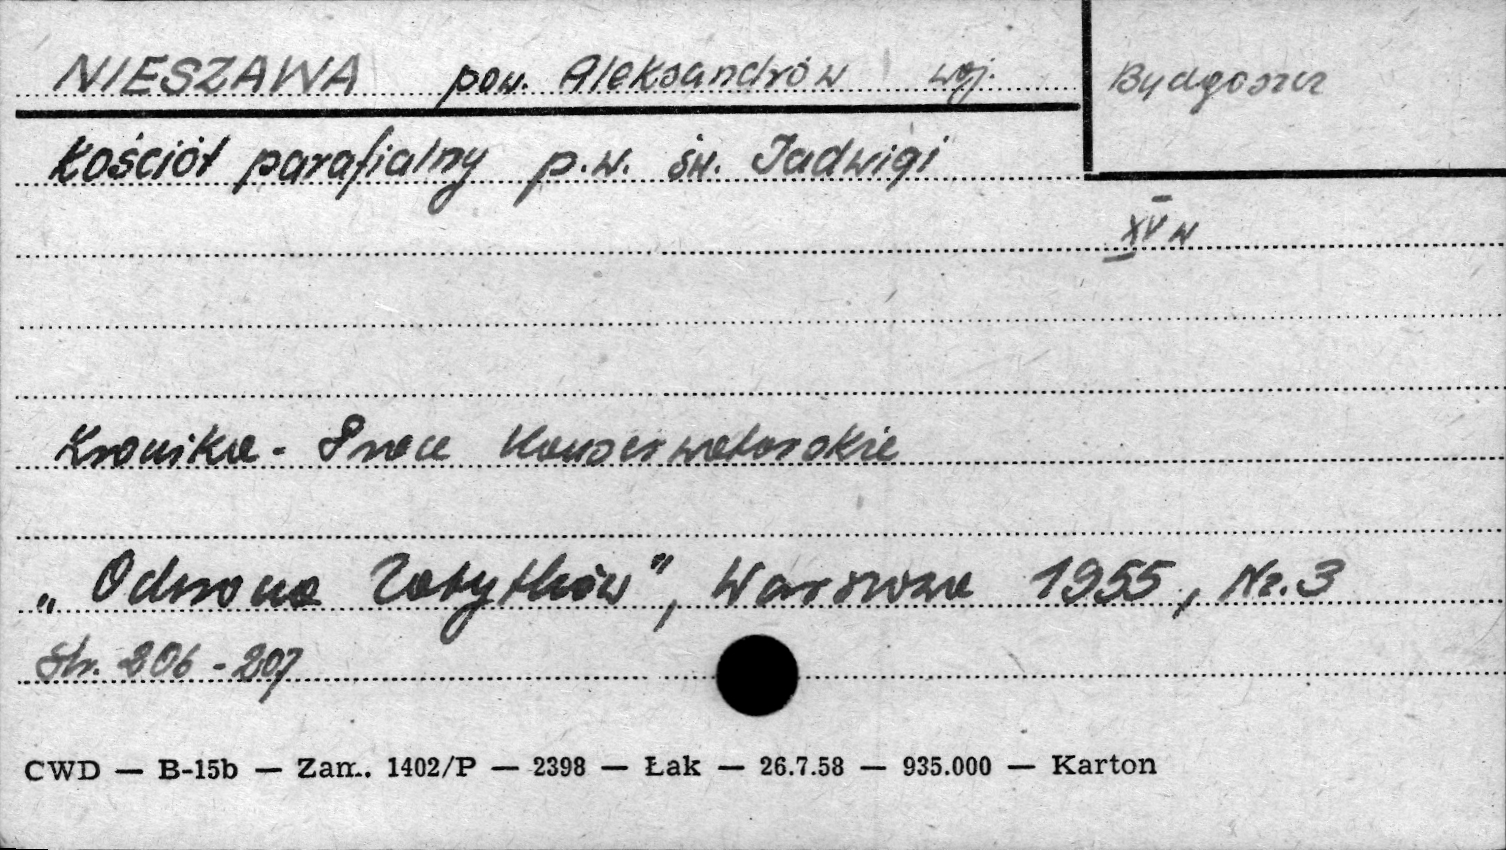 NIESZAWA pow. Aleksandrów woj. Bydgoszcz
Kościół parafialny p.w. św. Jadwigi
XV w
Kronika - Prace Konserwatorskie
„Ochrona Zabytków", Warszawa 1955, Nr. 3
Str. 206 - 207
CWD — B-15b — Zam. 1402/P — 2398 — Łak — 26.7.58 — 935.000 — Karton